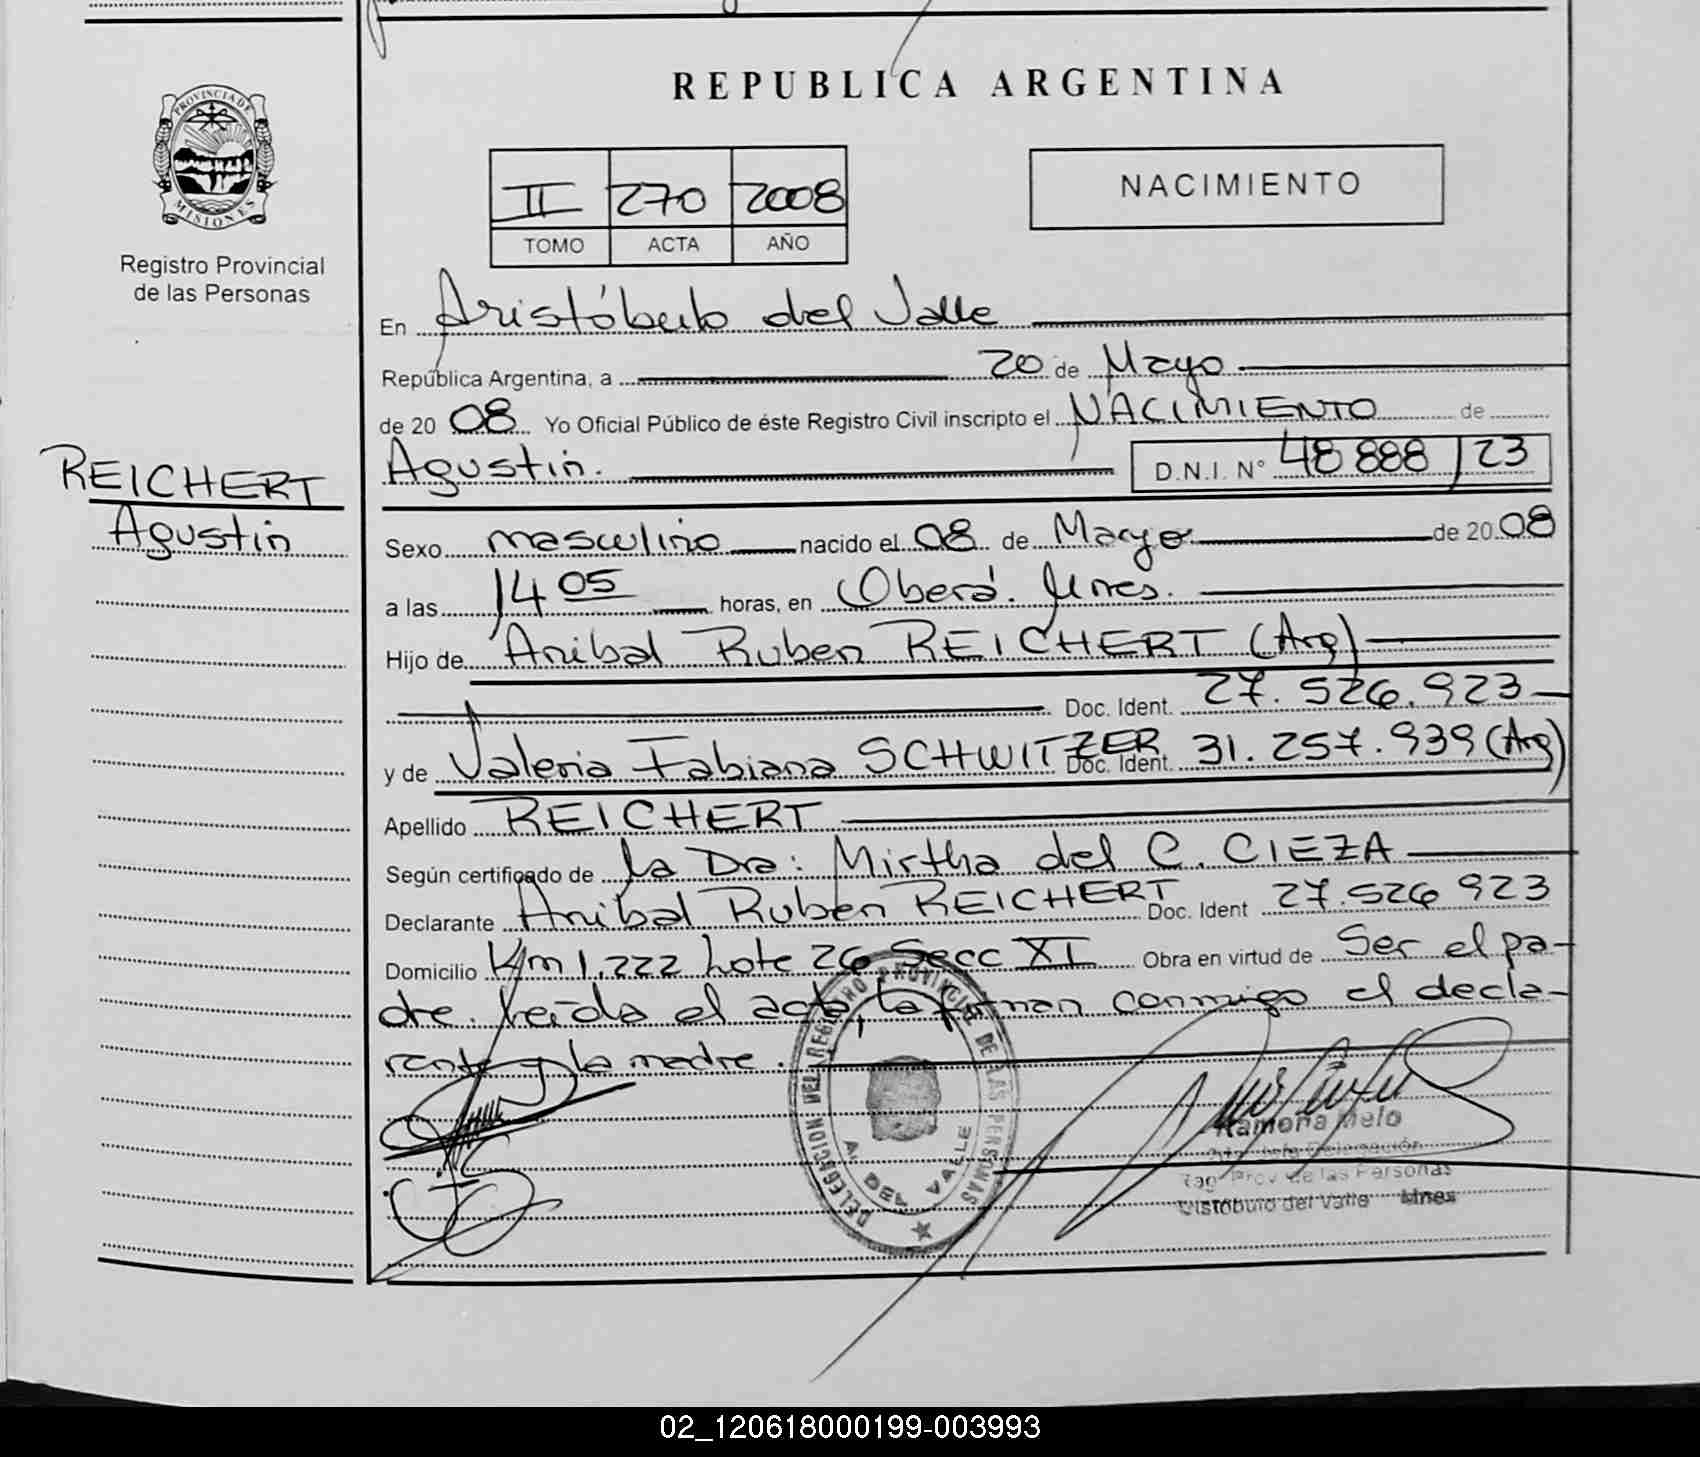 REPUBLICA ARGENTINA
PROVINCIA DE
MISIONES
Registro Provincial
de las Personas
II 270 2008
TOMO ACTA AÑO
NACIMIENTO
En Aristóbulo del Valle
República Argentina, a 20 de Mayo
de 20 08 Yo Oficial Público de éste Registro Civil inscripto el NACIMIENTO de
Agustin. D.N.I. N° 48 888 123
REICHERT
Agustin
Sexo masculino nacido el 08 de Mayo de 20 08
a las 14 05 horas, en Oberá. Mnes.
Hijo de Anibal Ruben REICHERT (Arg)
Doc. Ident. 27.526.923
y de Valeria Fabiana SCHWITZER Doc. Ident. 31.257.939 (Arg)
Apellido REICHERT
Según certificado de La Dra: Mirtha del C. CIEZA
Declarante Anibal Ruben REICHERT Doc. Ident 27.526 923
Domicilio Km 1.222 Lote 26 Secc XI Obra en virtud de Ser el pa-
dre. Leída el acta, la firman conmigo el decla-
rante y la madre.
DELEGACION DEL REGISTRO PROVINCIAL DE LAS PERSONAS
A. DEL VALLE
Ramona Melo
Reg. Prov. de las Personas
Aristóbulo del Valle Mnes
02_120618000199-003993